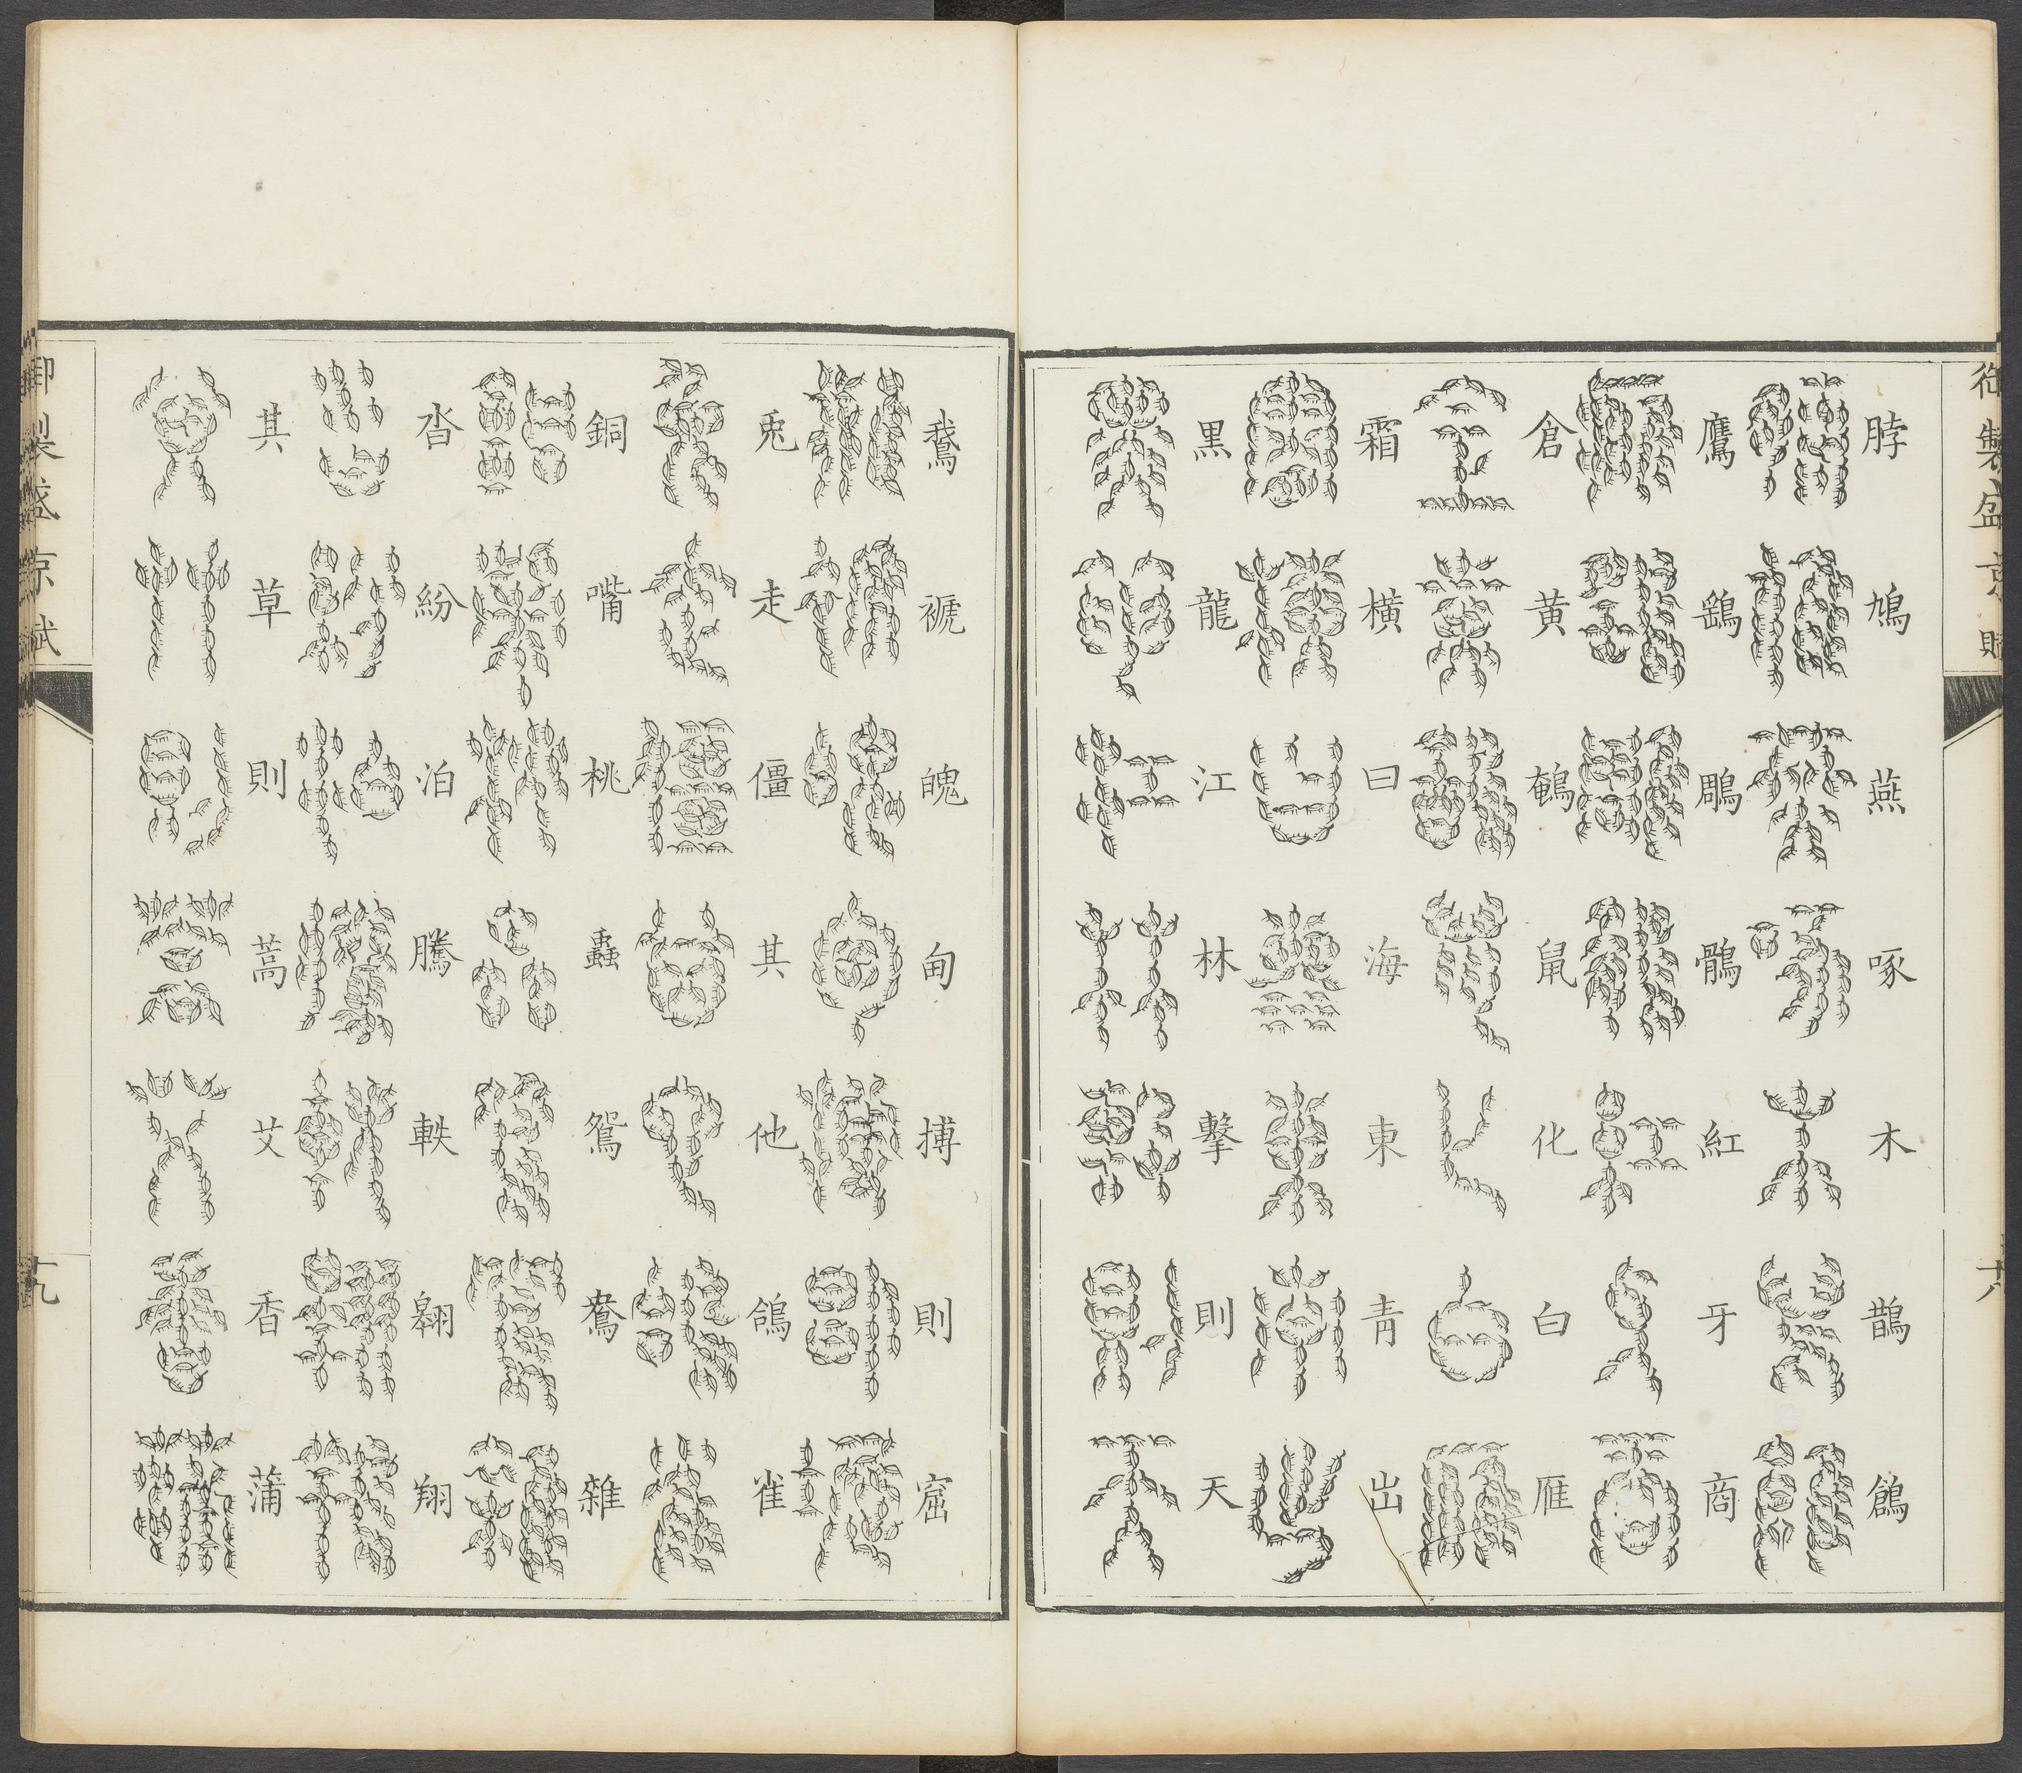 御製盛京賦
十八
脖鳩燕啄木鵲鶬
鷹鷂鵰鶻紅牙商
倉黃鵪鼠化白雁
霜橫曰海東青出
黑龍江林擊則天
鵝褫魄甸搏則窟
兎走僵其他鴿雀
銅嘴桃蟲鴛鴦雜
沓紛泊騰軼翱翔
其草則蒿艾香蒲
御製盛京賦
十九